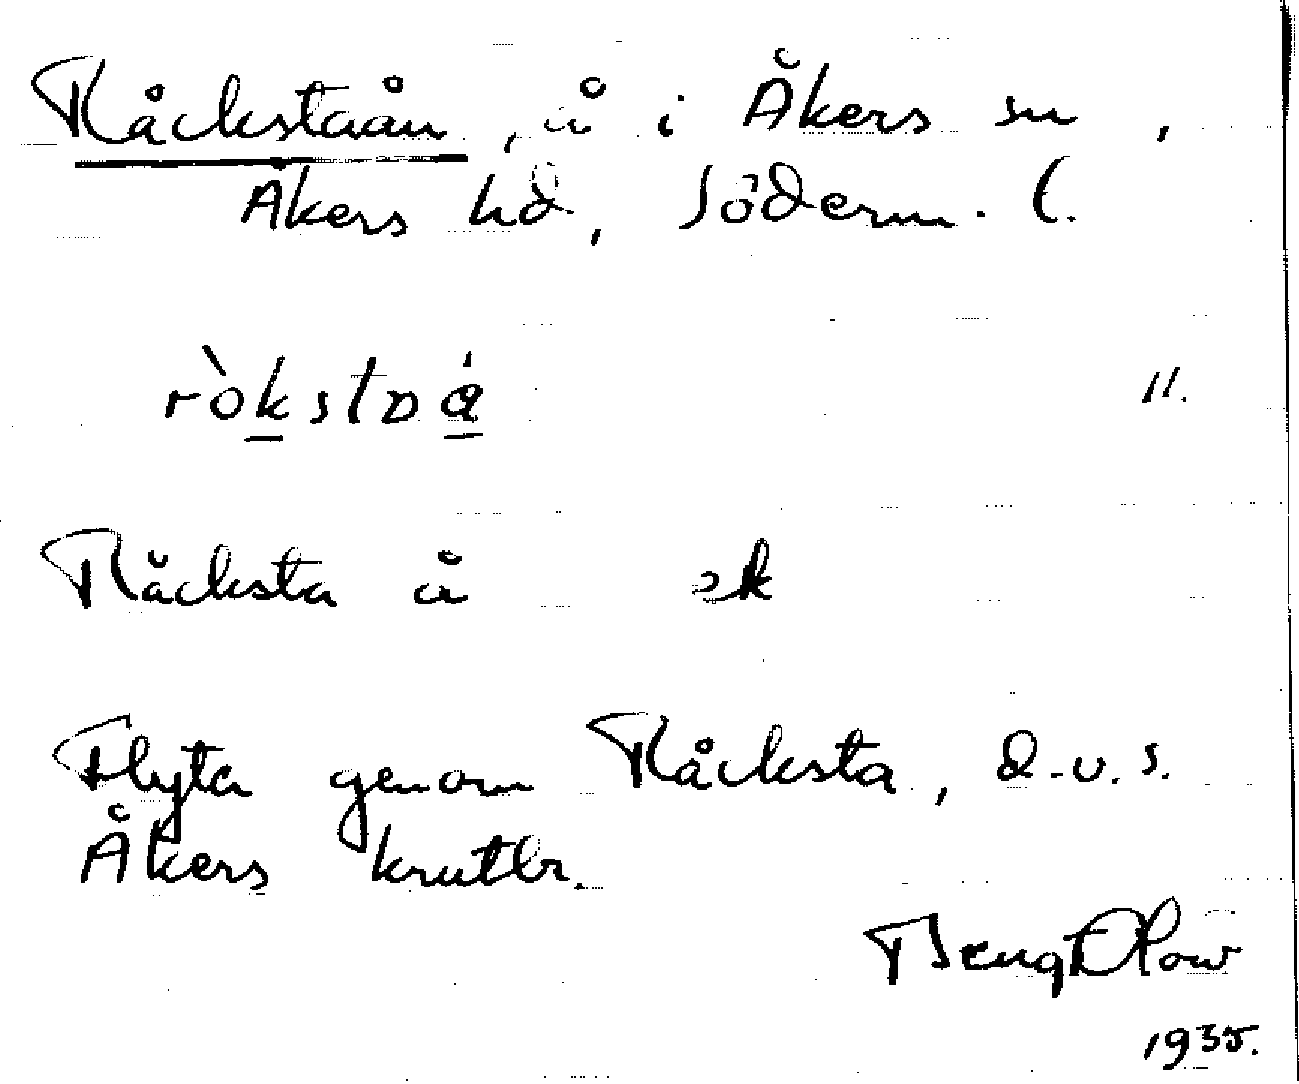 Råckstaån, å i Åkers sn,
Åkers hd, Söderm. l.
ròkstɒå̀ 11.
Råcksta å ek
Flyta genom Råcksta, d.v.s.
Åkers krutbr.
Bengt Olow
1935.